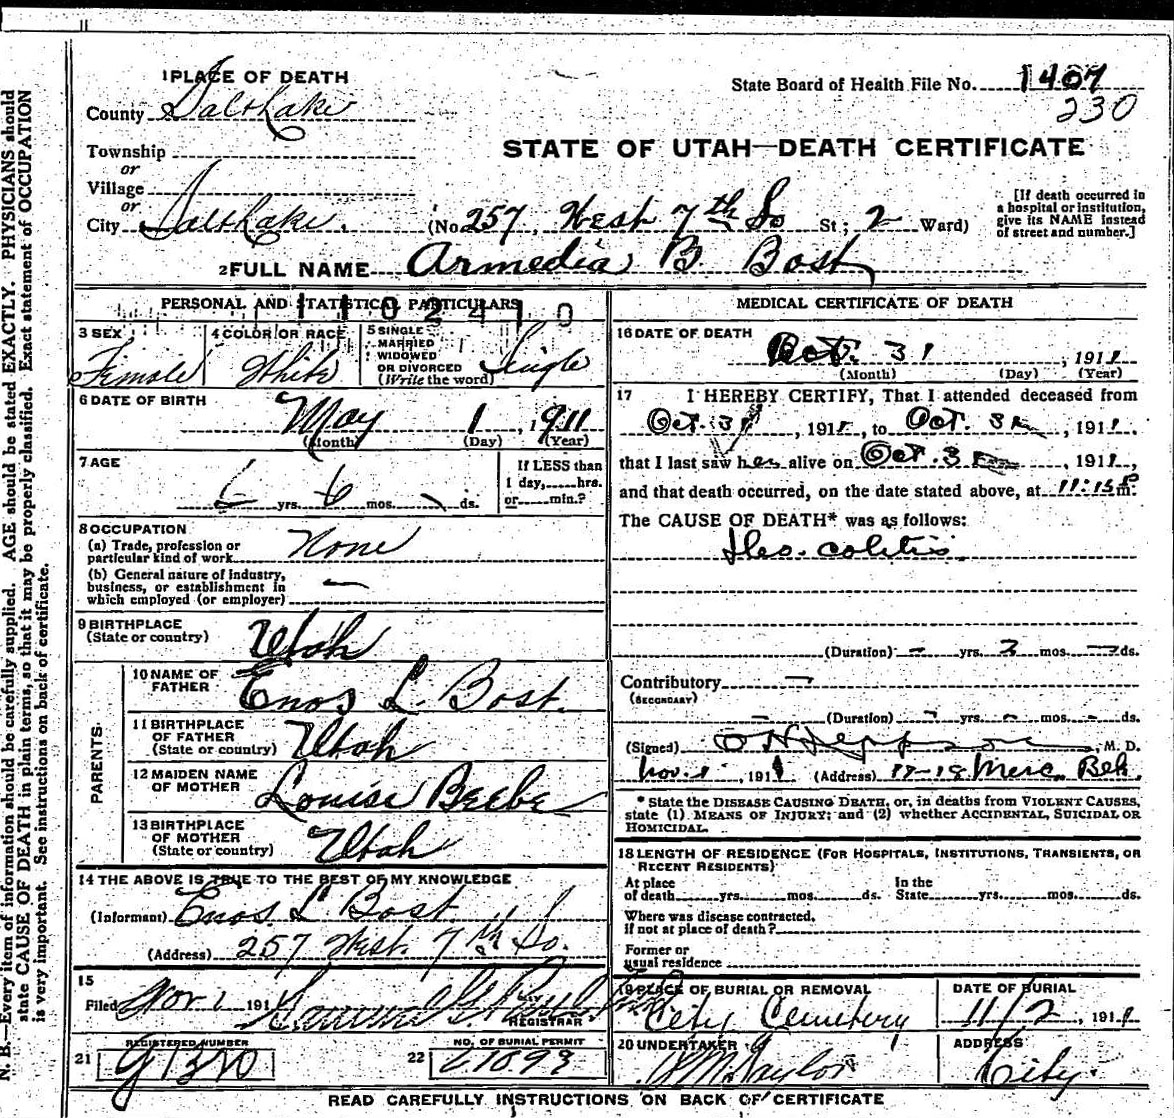 1 PLACE OF DEATH
State Board of Health File No. 1407
230
County Salt Lake
STATE OF UTAH—DEATH CERTIFICATE
Township
or
Village
or
City Salt Lake. (No. 257, West 7th So St; 2 Ward)
[If death occurred in
a hospital or institution,
give its NAME instead
of street and number.]
2 FULL NAME Armedia B. Bost
PERSONAL AND STATISTICAL PARTICULARS
3 SEX
Female
4 COLOR OR RACE
White
5 SINGLE
MARRIED
WIDOWED
OR DIVORCED
(Write the word)
Single
6 DATE OF BIRTH
May 1, 1911
(Month) (Day) (Year)
7 AGE
yrs. 6 mos. ds.
If LESS than
1 day,......hrs.
or......min.?
8 OCCUPATION
(a) Trade, profession or
particular kind of work
None
(b) General nature of industry,
business, or establishment in
which employed (or employer) —
9 BIRTHPLACE
(State or country)
Utah
PARENTS
10 NAME OF
FATHER
Enos L. Bost.
11 BIRTHPLACE
OF FATHER
(State or country)
Utah
12 MAIDEN NAME
OF MOTHER
Louise Beebe
13 BIRTHPLACE
OF MOTHER
(State or country)
Utah
14 THE ABOVE IS TRUE TO THE BEST OF MY KNOWLEDGE
(Informant) Enos L Bost.
(Address) 257 West. 7th So.
15
Filed Nov 1 191
REGISTRAR
21 REGISTERED NUMBER
22 NO. OF BURIAL PERMIT
MEDICAL CERTIFICATE OF DEATH
16 DATE OF DEATH
Oct. 31, 1911
(Month) (Day) (Year)
17 I HEREBY CERTIFY, That I attended deceased from
Oct. 31, 1911, to Oct. 31, 1911.
that I last saw her alive on Oct. 31, 1911,
and that death occurred, on the date stated above, at 11:15 P m.
The CAUSE OF DEATH* was as follows:
Ileo. colitis
(Duration) — yrs. 2 mos. — ds.
Contributory —
(SECONDARY)
(Duration) - yrs. - mos. - ds.
(Signed) M. D.
Nov. 1, 1911 (Address) 17-18 Merc. Blk.
* State the DISEASE CAUSING DEATH, or, in deaths from VIOLENT CAUSES,
state (1) MEANS OF INJURY; and (2) whether ACCIDENTAL, SUICIDAL OR
HOMICIDAL.
18 LENGTH OF RESIDENCE (FOR HOSPITALS, INSTITUTIONS, TRANSIENTS, OR
RECENT RESIDENTS)
At place
of death......yrs......mos......ds.
In the
State......yrs......mos......ds.
Where was disease contracted,
if not at place of death?
Former or
usual residence
19 PLACE OF BURIAL OR REMOVAL
City Cemetery
DATE OF BURIAL
11/2, 1911
20 UNDERTAKER
Taylor
ADDRESS
City.
READ CAREFULLY INSTRUCTIONS ON BACK OF CERTIFICATE
N. B.—Every item of information should be carefully supplied. AGE should be stated EXACTLY. PHYSICIANS should
state CAUSE OF DEATH in plain terms, so that it may be properly classified. Exact statement of OCCUPATION
is very important. See instructions on back of certificate.